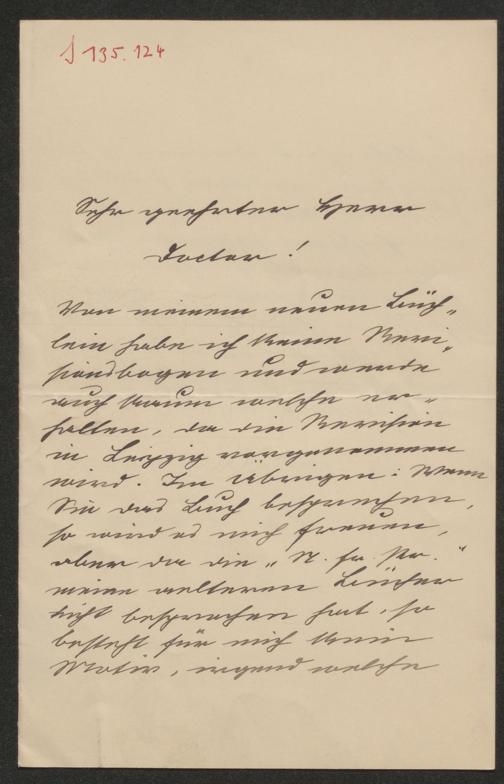 J 135.124
Sehr geehrter Herr
Doctor!
Von meinem neuen Büch„
lein habe ich keine Revi„
sionsbogen und werde
auch kaum welche er„
halten, da die Revision
in Leipzig vorgenommen
wird. Im Übrigen: Wenn
Sie das Buch besprechen,
so wird es mich freuen,
aber da die „N. fr. Pr."
meine aelteren Bücher
nicht besprochen hat, so
besteht für mich kein
Motiv, irgend welche